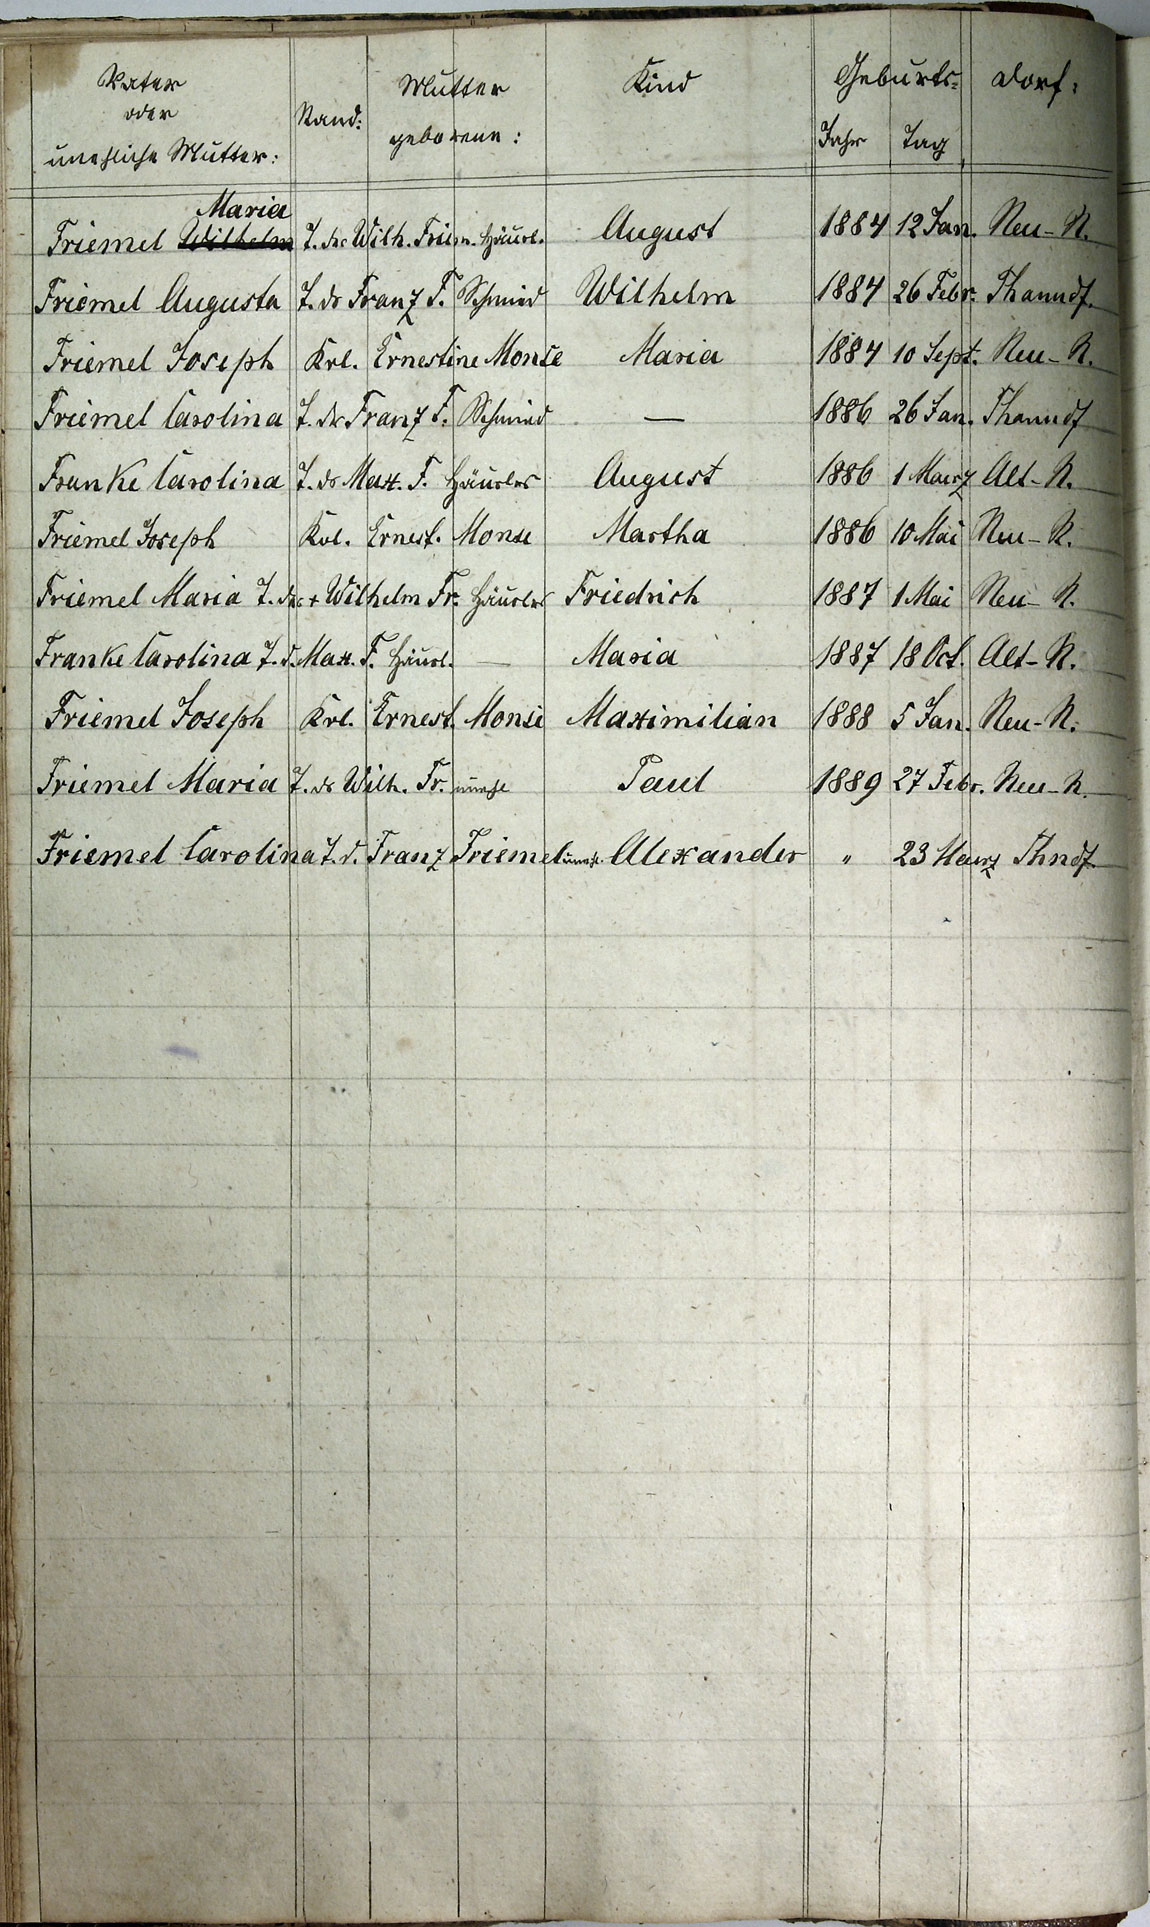 Vater
oder
uneheliche Mutter:
Stand:
Mutter
geborene:
Kind
Geburts=
Jahr Tag
Dorf:
Maria
Friemel Wilhelm T. des Wilh. Friem. Häusl. August 1884 12 Jan. Neu-R.
Friemel Augusta T. ds Franz F. Schmied Wilhelm 1884 26 Febr. Thanndf.
Friemel Joseph Krl. Ernestine Monse Maria 1884 10 Sept. Neu-R.
Friemel Carolina T. ds Franz F. Schmied — 1886 26 Jan. Thanndf
Franke Carolina T. ds Max. F. Häusler August 1886 1 Maerz Alt-R.
Friemel Joseph Krl. Ernest. Monse Martha 1886 10 Mai Neu-R.
Friemel Maria T. des + Wilhelm Fr. Häusler Friedrich 1887 1 Mai Neu-R.
Franke Carolina T. d. Max. F. Häusl. — Maria 1887 18 Oct. Alt-R.
Friemel Joseph Krl. Ernest. Monse Maximilian 1888 5 Jan. Neu-R.
Friemel Maria T. ds Wilh. Fr. unehe Paul 1889 27 Febr. Neu-R.
Friemel Carolina T. d. Franz Friemel uneh. Alexander " 23 Maerz Thndf.